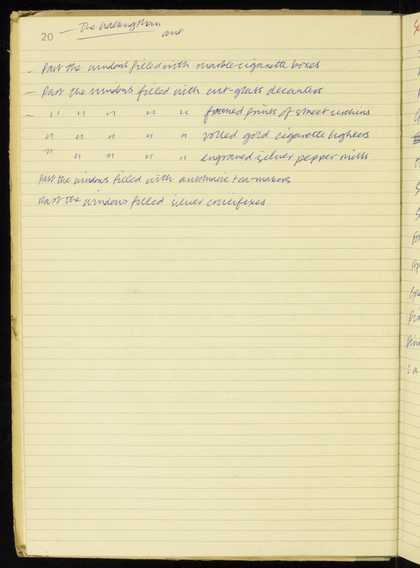 20 — The walking
and
- Past the windows filled with marble cigarette boxes
- Past the windows filled with cut-glass decanters
- " " " " " framed prints of street urchins
" " " " " rolled gold cigarette lighters
" " " " " engraved silver pepper mills
Past the windows filled with automatic tea-makers
Past the windows filled silver crucifixes